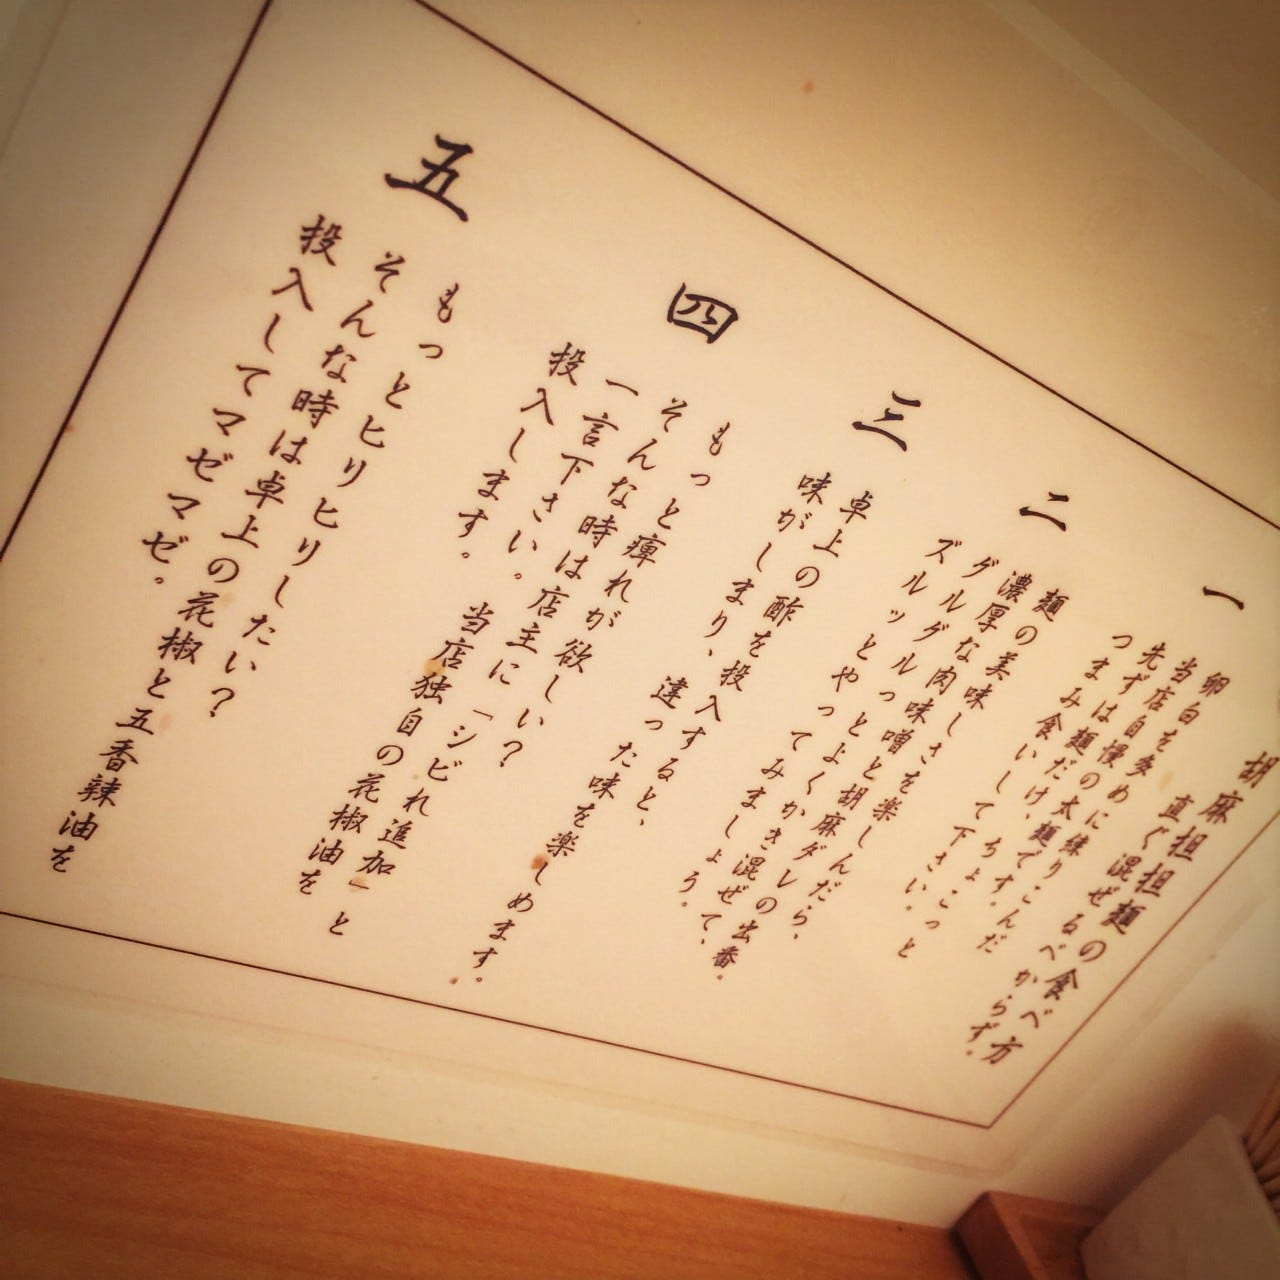 胡麻担担麺の食べ方
直ぐ混ぜるべからず。
一
卵白を多めに練りこんだ
当店自慢の太麺です。
先ずは麺だけ、ちょこっと
つまみ食いして下さい。
二
麺の美味しさを楽しんだら、
濃厚な肉味噌と胡麻ダレの出番。
グルグルっとよくかき混ぜて、
ズルルッとやってみましょう。
三
卓上の酢を投入すると、
味がしまり、違った味を楽しめます。
四
もっと痺れが欲しい？
そんな時は店主に「シビれ追加」と
一言下さい。当店独自の花椒油を
投入します。
五
もっとヒリヒリしたい？
そんな時は卓上の花椒と五香辣油を
投入してマゼマゼ。